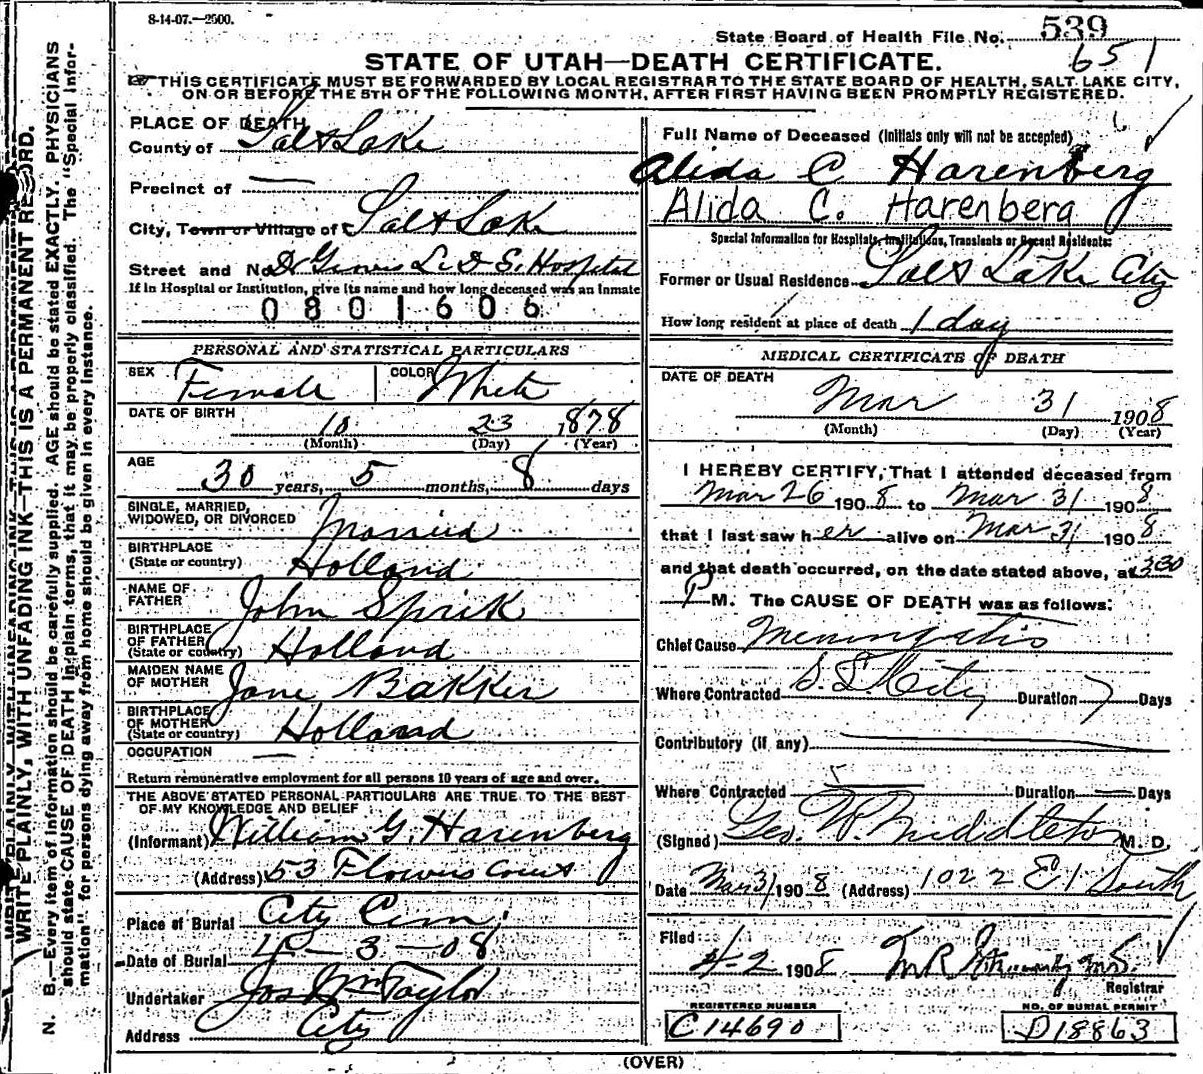 8-14-07.—2500.
State Board of Health File No. 539
651
STATE OF UTAH—DEATH CERTIFICATE.
THIS CERTIFICATE MUST BE FORWARDED BY LOCAL REGISTRAR TO THE STATE BOARD OF HEALTH, SALT LAKE CITY,
ON OR BEFORE THE 5TH OF THE FOLLOWING MONTH, AFTER FIRST HAVING BEEN PROMPTLY REGISTERED.
PLACE OF DEATH
County of Salt Lake
Precinct of —
City, Town or Village of Salt Lake
Street and No. Dr Groves L. D. S. Hospital
If in Hospital or Institution, give its name and how long deceased was an Inmate
0801606
PERSONAL AND STATISTICAL PARTICULARS
SEX Female COLOR White
DATE OF BIRTH
10 23 1878
(Month) (Day) (Year)
AGE
30 years, 5 months, 8 days
SINGLE, MARRIED,
WIDOWED, OR DIVORCED Married
BIRTHPLACE
(State or country) Holland
NAME OF
FATHER John Sprik
BIRTHPLACE
OF FATHER
(State or country) Holland
MAIDEN NAME
OF MOTHER Jane Bakker
BIRTHPLACE
OF MOTHER
(State or country) Holland
OCCUPATION —
Return remunerative employment for all persons 10 years of age and over.
THE ABOVE STATED PERSONAL PARTICULARS ARE TRUE TO THE BEST
OF MY KNOWLEDGE AND BELIEF
(Informant) William G. Harenberg
(Address) 53 Flowers Court
Place of Burial City Cem.
Date of Burial 4-3-08
Undertaker Jos Wm Taylor
Address City
Full Name of Deceased (Initials only will not be accepted)
Alida C Harenberg
Alida C. Harenberg
Special Information for Hospitals, Institutions, Transients or Recent Residents:
Former or Usual Residence Salt Lake City
How long resident at place of death 1 day
MEDICAL CERTIFICATE OF DEATH
DATE OF DEATH
Mar 31 1908
(Month) (Day) (Year)
I HEREBY CERTIFY, That I attended deceased from
Mar 26 1908 to Mar 31 1908
that I last saw her alive on Mar 31 1908
and that death occurred, on the date stated above, at 330
P M. The CAUSE OF DEATH was as follows:
Chief Cause Meningitis
Where Contracted S. L. City Duration 7 Days
Contributory (if any) —
Where Contracted — Duration — Days
(Signed) Geo. W. Middleton M. D.
Date Mar 31 1908 (Address) 1022 E 1 South
Filed
4-2 1908
Registrar
REGISTERED NUMBER
C14690
NO. OF BURIAL PERMIT
D18863
(OVER)
WRITE PLAINLY, WITH UNFADING INK—THIS IS A PERMANENT RECORD.
N. B.—Every item of information should be carefully supplied. AGE should be stated EXACTLY. PHYSICIANS
should state CAUSE OF DEATH in plain terms, that it may be properly classified. The "Special Infor-
mation" for persons dying away from home should be given in every instance.